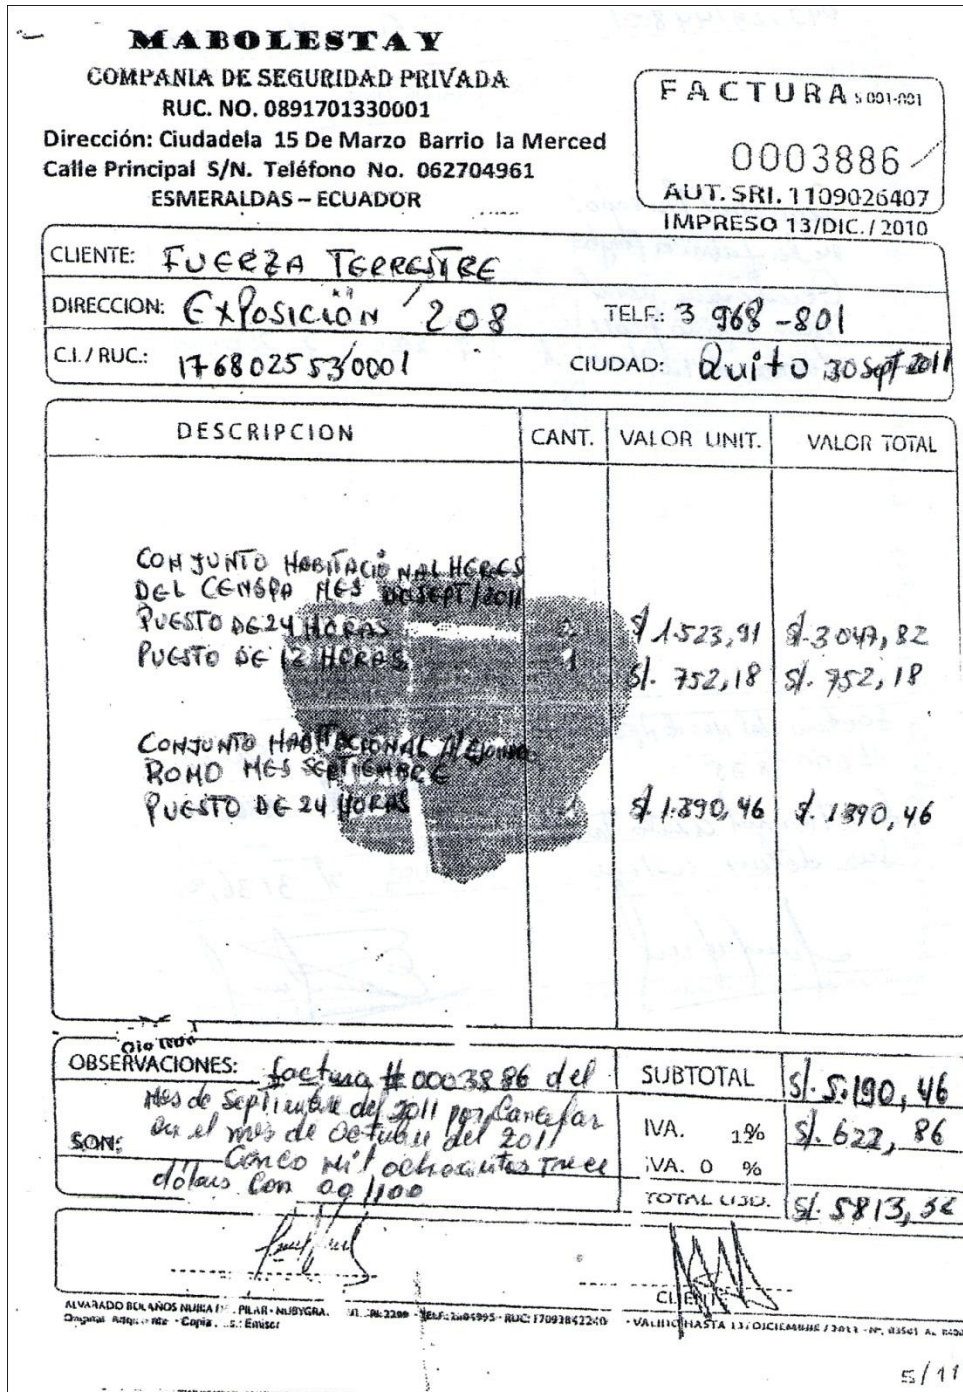 MABOLESTAY
COMPAÑIA DE SEGURIDAD PRIVADA
RUC. NO. 0891701330001
Dirección: Ciudadela 15 De Marzo Barrio la Merced
Calle Principal S/N. Teléfono No. 062704961
ESMERALDAS – ECUADOR
FACTURA S 001-001
0003886
AUT. SRI. 1109026407
IMPRESO 13/DIC. / 2010
CLIENTE: FUERZA TERRESTRE
DIRECCION: EXPOSICIÓN 208 TELF.: 3 968-801
C.I. / RUC.: 1768025530001 CIUDAD: Quito 30 Sept 2011
DESCRIPCION CANT. VALOR UNIT. VALOR TOTAL
CONJUNTO HABITACIONAL HERES
DEL CENEPA MES DE SEPT/2011
PUESTO DE 24 HORAS 2 $ 1.523,91 $. 3047,82
PUESTO DE 12 HORAS 1 S/. 752,18 S/. 752,18
CONJUNTO HABITACIONAL
ROMO MES SEPTIEMBRE
PUESTO DE 24 HORAS 1 $ 1.390,46 $. 1390,46
OBSERVACIONES: factura # 0003886 del
Mes de Septiembre del 2011 por Cancelar
en el mes de Octubre del 2011
SON: Cinco mil ochocientos Trece
dólares Con /100
SUBTOTAL S/. 5.190,46
IVA. 1 % S/. 622,86
IVA. 0 %
TOTAL USD. S/. 5813,
CLIENTE
ALVARADO BOLAÑOS NURIA PILAR - NUBYGRA.
5/11